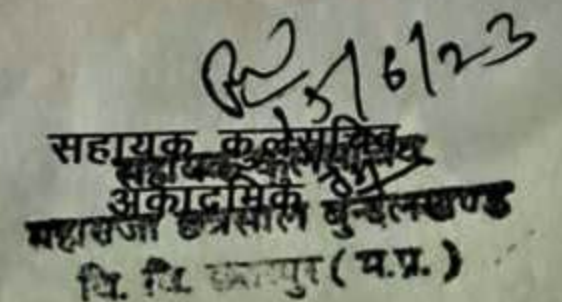 5/6/23
सहायक कुलसचिव
अकादमिक
महाराजा छत्रसाल बुन्देलखण्ड
वि. वि. छतरपुर (म.प्र.)